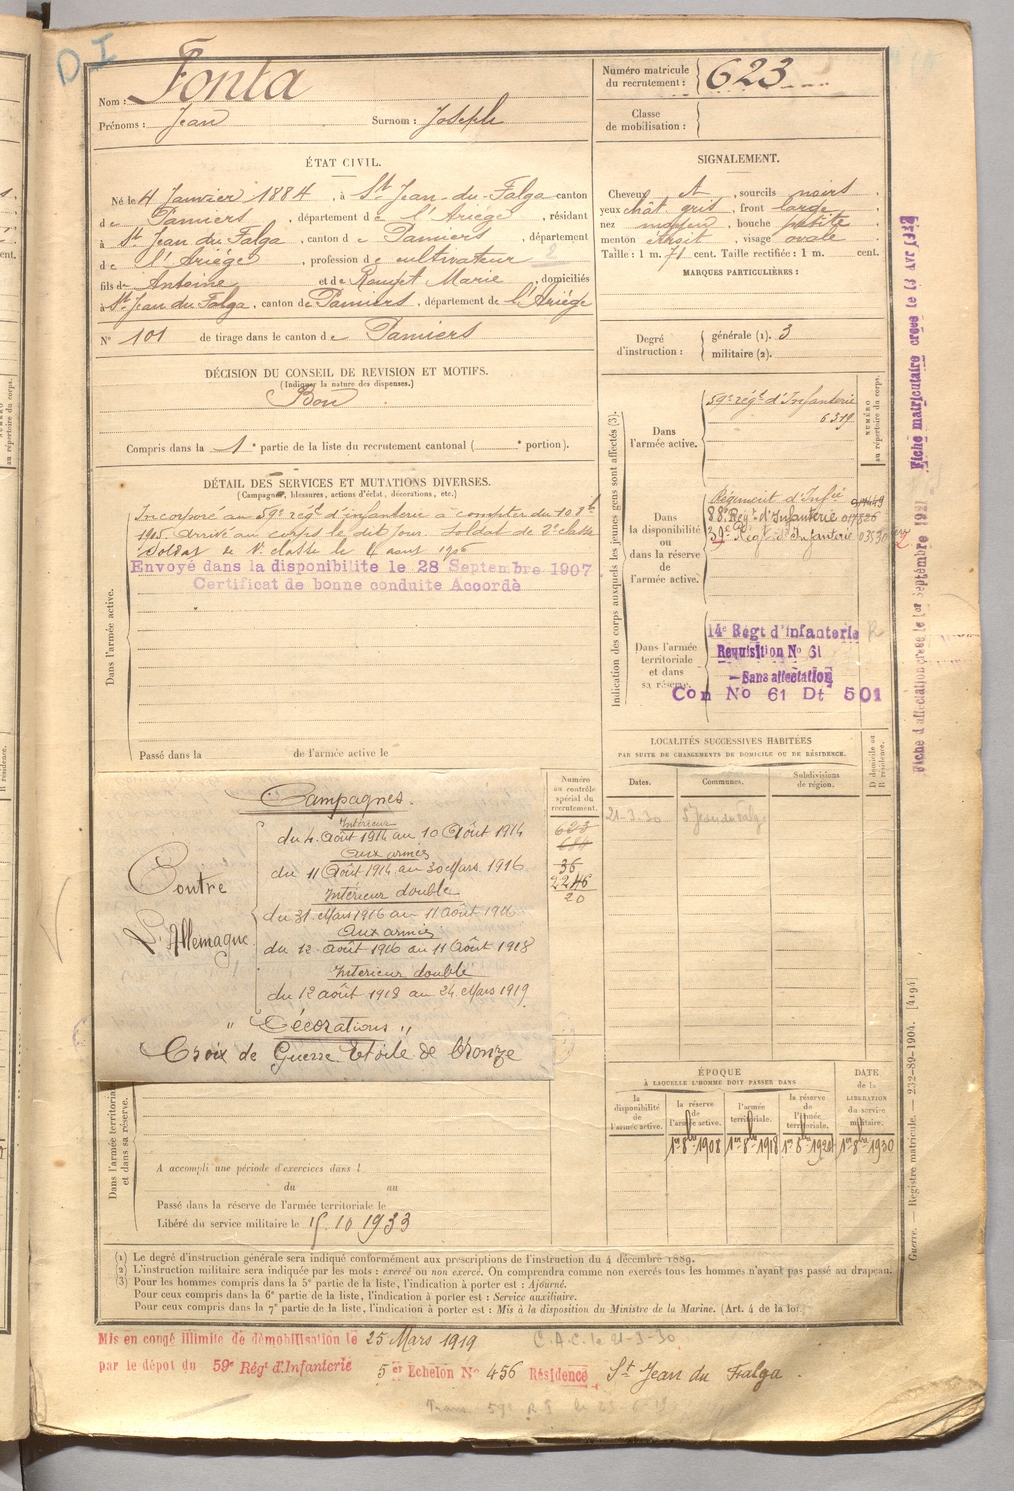 D I
Nom : Fonta
Prénoms : Jean Surnom : Joseph
Numéro matricule du recrutement : 623
Classe de mobilisation :
ÉTAT CIVIL.
Né le 4 Janvier 1884, à St Jean-du-Falga canton
de Pamiers, département de l'Ariège, résidant
à St Jean du Falga, canton de Pamiers, département
de l'Ariège, profession de cultivateur 2
fils de Antoine et de Rouzet Marie, domiciliés
à St Jean du Falga, canton de Pamiers, département de l'Ariège
N° 101 de tirage dans le canton de Pamiers
SIGNALEMENT.
Cheveux , sourcils noirs,
yeux chât. gris, front large,
nez moyen, bouche petite,
menton étroit, visage ovale,
Taille : 1 m. 71 cent. Taille rectifiée : 1 m. cent.
MARQUES PARTICULIÈRES :
Degré d'instruction : générale (1). 3
militaire (2).
DÉCISION DU CONSEIL DE REVISION ET MOTIFS.
(Indiquer la nature des dispenses.)
Bon
Compris dans la 1e partie de la liste du recrutement cantonal ( e portion).
DÉTAIL DES SERVICES ET MUTATIONS DIVERSES.
(Campagnes, blessures, actions d'éclat, décorations, etc.)
Dans l'armée active.
Incorporé au 59e régt d'infanterie à compter du 10 8bre
1905. Arrivé au corps le dit jour. Soldat de 2e classe
Soldat de 1e classe le 4 aout 1906
Envoyé dans la disponibilité le 28 Septembre 1907
Certificat de bonne conduite Accordé
Passé dans la de l'armée active le
Indication des corps auxquels les jeunes gens sont affectés (3).
NUMÉRO au répertoire du corps.
Dans l'armée active.
59e régt d'Infanterie
6319
Dans la disponibilité ou dans la réserve de l'armée active.
Régiment d'Infie
88e Régt d'Infanterie
59e Régt d'Infanterie
Dans l'armée territoriale et dans sa réserve.
14e Régt d'infanterie R
Requisition No 61
—Sans affectation
Con No 61 Dt 501
Fiche matriculaire créée le 13 AVR 1927
Fiche d'affectation créée le 1er Septembre 1921
LOCALITÉS SUCCESSIVES HABITÉES
PAR SUITE DE CHANGEMENTS DE DOMICILE OU DE RÉSIDENCE.
Dates. Communes. Subdivisions de région. D domicile ou R résidence.
21-3-30 St Jean du Falga
Numéro au contrôle spécial du recrutement.
623
36
2246
20
Campagnes.
Contre l'Allemagne
Intérieur
du 4 Août 1914 au 10 Août 1914
Aux armées
du 11 Août 1914 au 30 Mars 1916
Intérieur double
du 31 Mars 1916 au 11 Août 1916
Aux armées
du 12 Août 1916 au 11 Août 1918
Intérieur double
du 12 août 1918 au 24 Mars 1919
" Décorations "
Croix de Guerre Étoile de bronze
ÉPOQUE
À LAQUELLE L'HOMME DOIT PASSER DANS
la disponibilité de l'armée active. la réserve de l'armée active. l'armée territoriale. la réserve de l'armée territoriale.
DATE de la LIBÉRATION du service militaire.
1er 8bre 1908 1er 8bre 1918 1er 8bre 1924 1er 8bre 1930
Dans l'armée territoriale et dans sa réserve.
A accompli une période d'exercices dans l
du au
Passé dans la réserve de l'armée territoriale le
Libéré du service militaire le 15.10 1933
(1) Le degré d'instruction générale sera indiqué conformément aux prescriptions de l'instruction du 4 décembre 1889.
(2) L'instruction militaire sera indiquée par les mots : exercé ou non exercé. On comprendra comme non exercés tous les hommes n'ayant pas passé au drapeau.
(3) Pour les hommes compris dans la 5e partie de la liste, l'indication à porter est : Ajourné.
Pour ceux compris dans la 6e partie de la liste, l'indication à porter est : Service auxiliaire.
Pour ceux compris dans la 7e partie de la liste, l'indication à porter est : Mis à la disposition du Ministre de la Marine. (Art. 4 de la loi.)
Guerre. — Registre matricule. — 232-89-1904. [4194]
Mis en congé illimité de démobilisation le 25 Mars 1919 C.A.C. le 21-3-30
par le dépôt du 59e Régt d'Infanterie 5er Echelon No 456 Résidence St Jean du Falga.